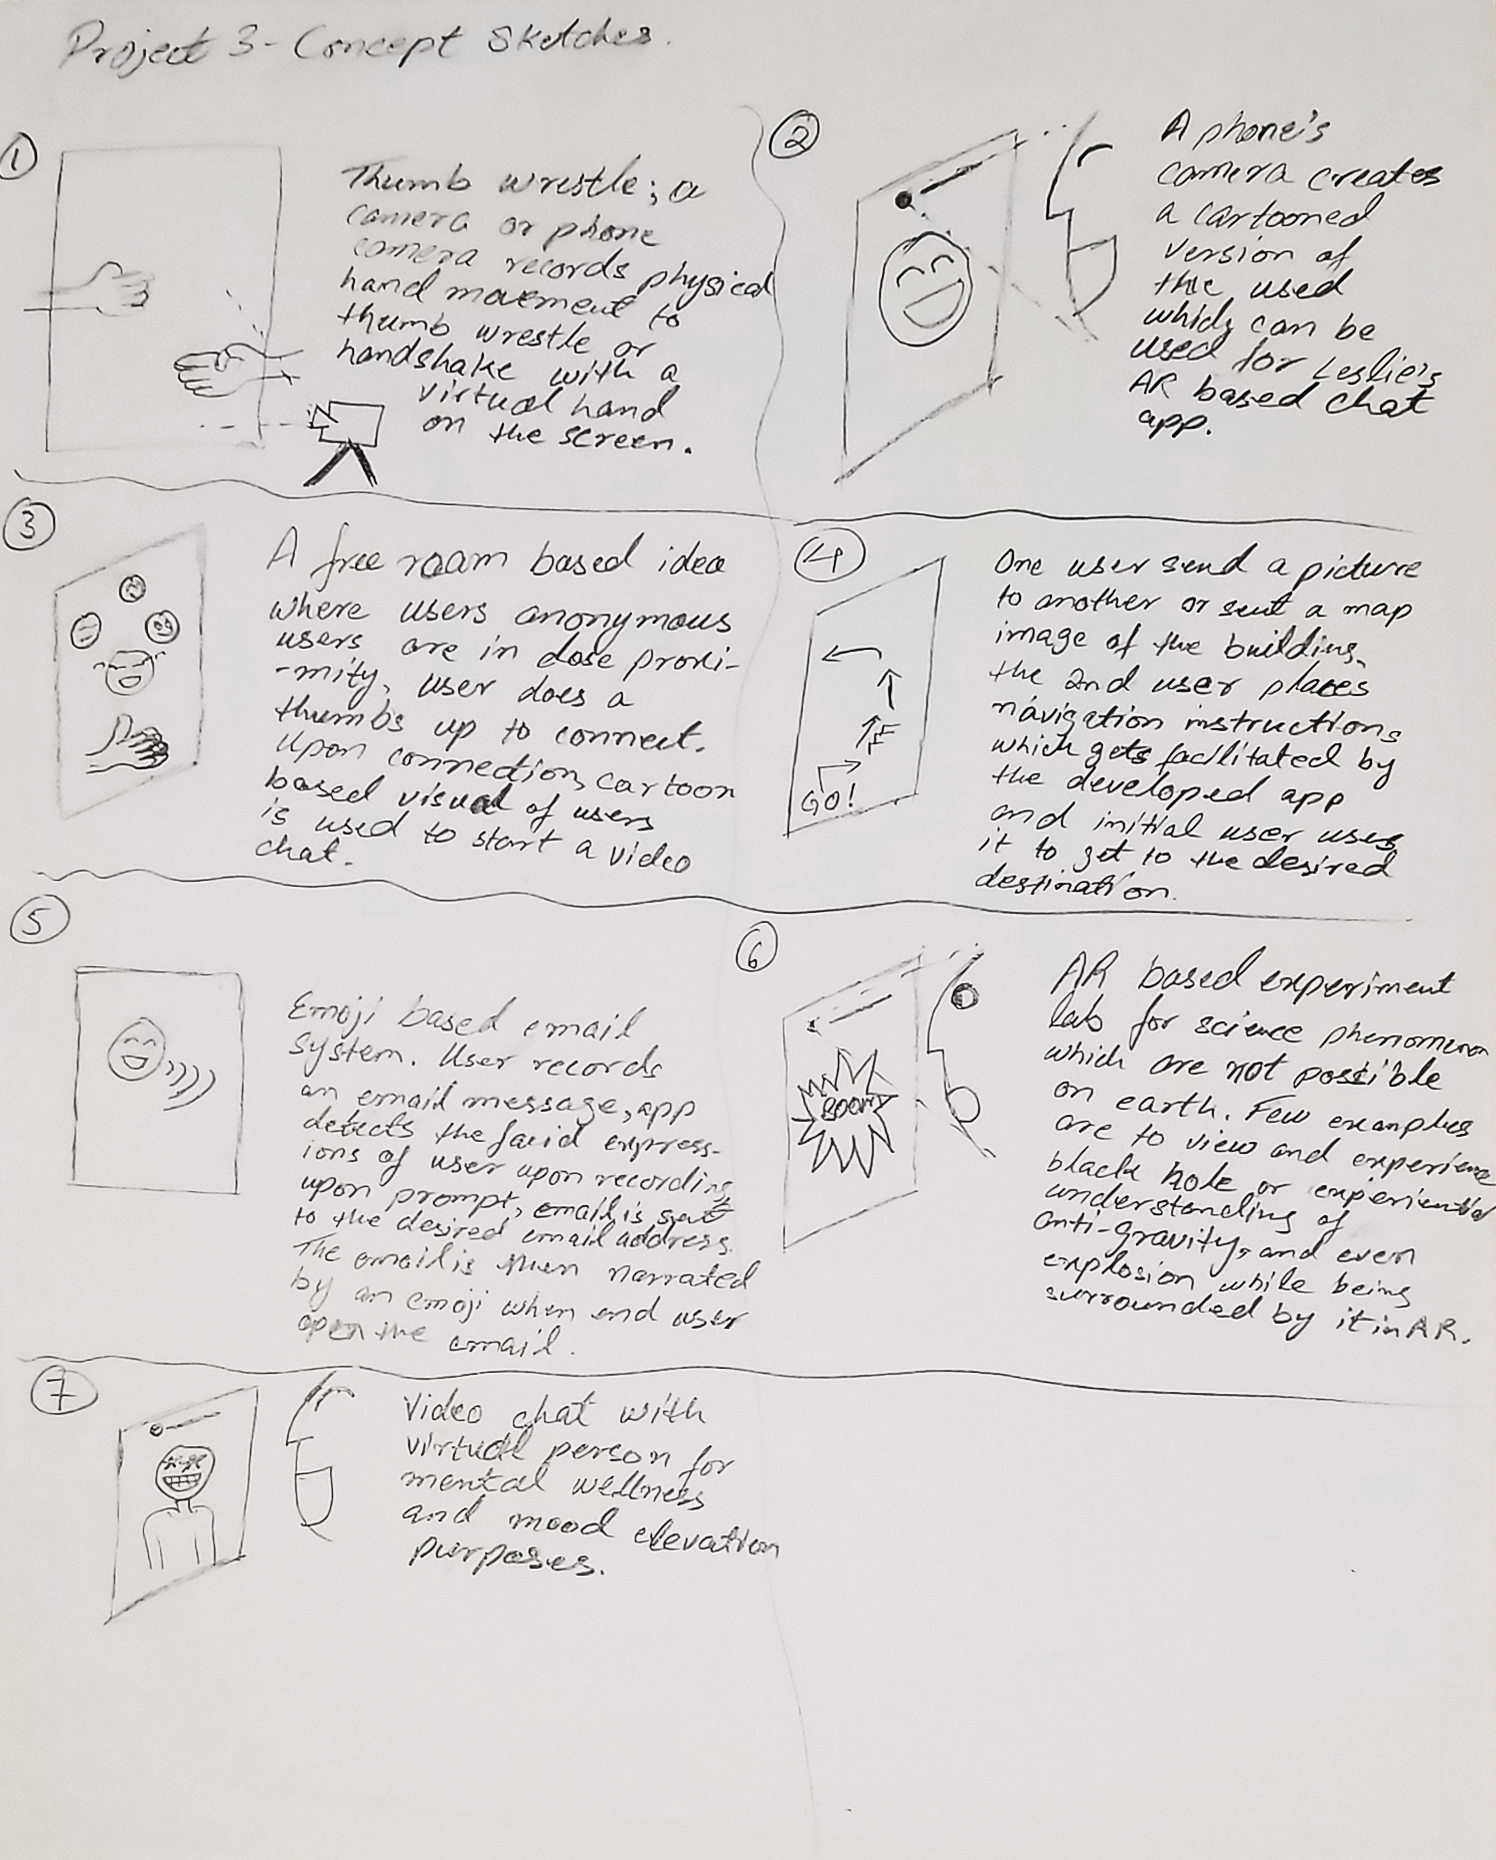 Project 3 - Concept Sketches.
1
Thumb wrestle; a
camera or phone
camera records physical
hand movement to
thumb wrestle or
handshake with a
virtual hand
on the screen.
2
A phone's
camera creates
a cartooned
version of
the used
which can be
used for Leslie's
AR based chat
app.
3
A free roam based idea
where users anonymous
users are in close proxi-
-mity, user does a
thumbs up to connect.
Upon connection, cartoon
based visual of users
is used to start a video
chat.
4
GO!
One user send a picture
to another or sent a map
image of the building,
the 2nd user places
navigation instructions
which gets facilitated by
the developed app
and initial user uses
it to get to the desired
destination.
5
Emoji based email
system. User records
an email message, app
detects the facial express-
ions of user upon recording,
upon prompt, email is sent
to the desired email address.
The email is then narrated
by an emoji when end user
open the email.
6
BOOM
AR based experiment
lab for science phenomenon
which are not possible
on earth. Few examples
are to view and experience
black hole or experiential
understanding of
anti-gravity, and even
explosion while being
surrounded by it in AR.
7
Video chat with
virtual person for
mental wellness
and mood elevation
purposes.